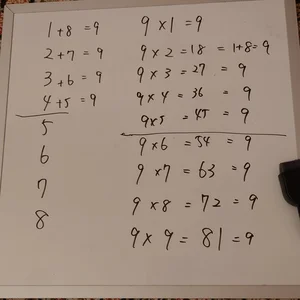 1+8=9
2+7=9
3+6=9
4+5=9
5
6
7
8
9×1=9
9×2=18=1+8=9
9×3=27=9
9×4=36=9
9×5=45=9
9×6=54=9
9×7=63=9
9×8=72=9
9×9=81=9